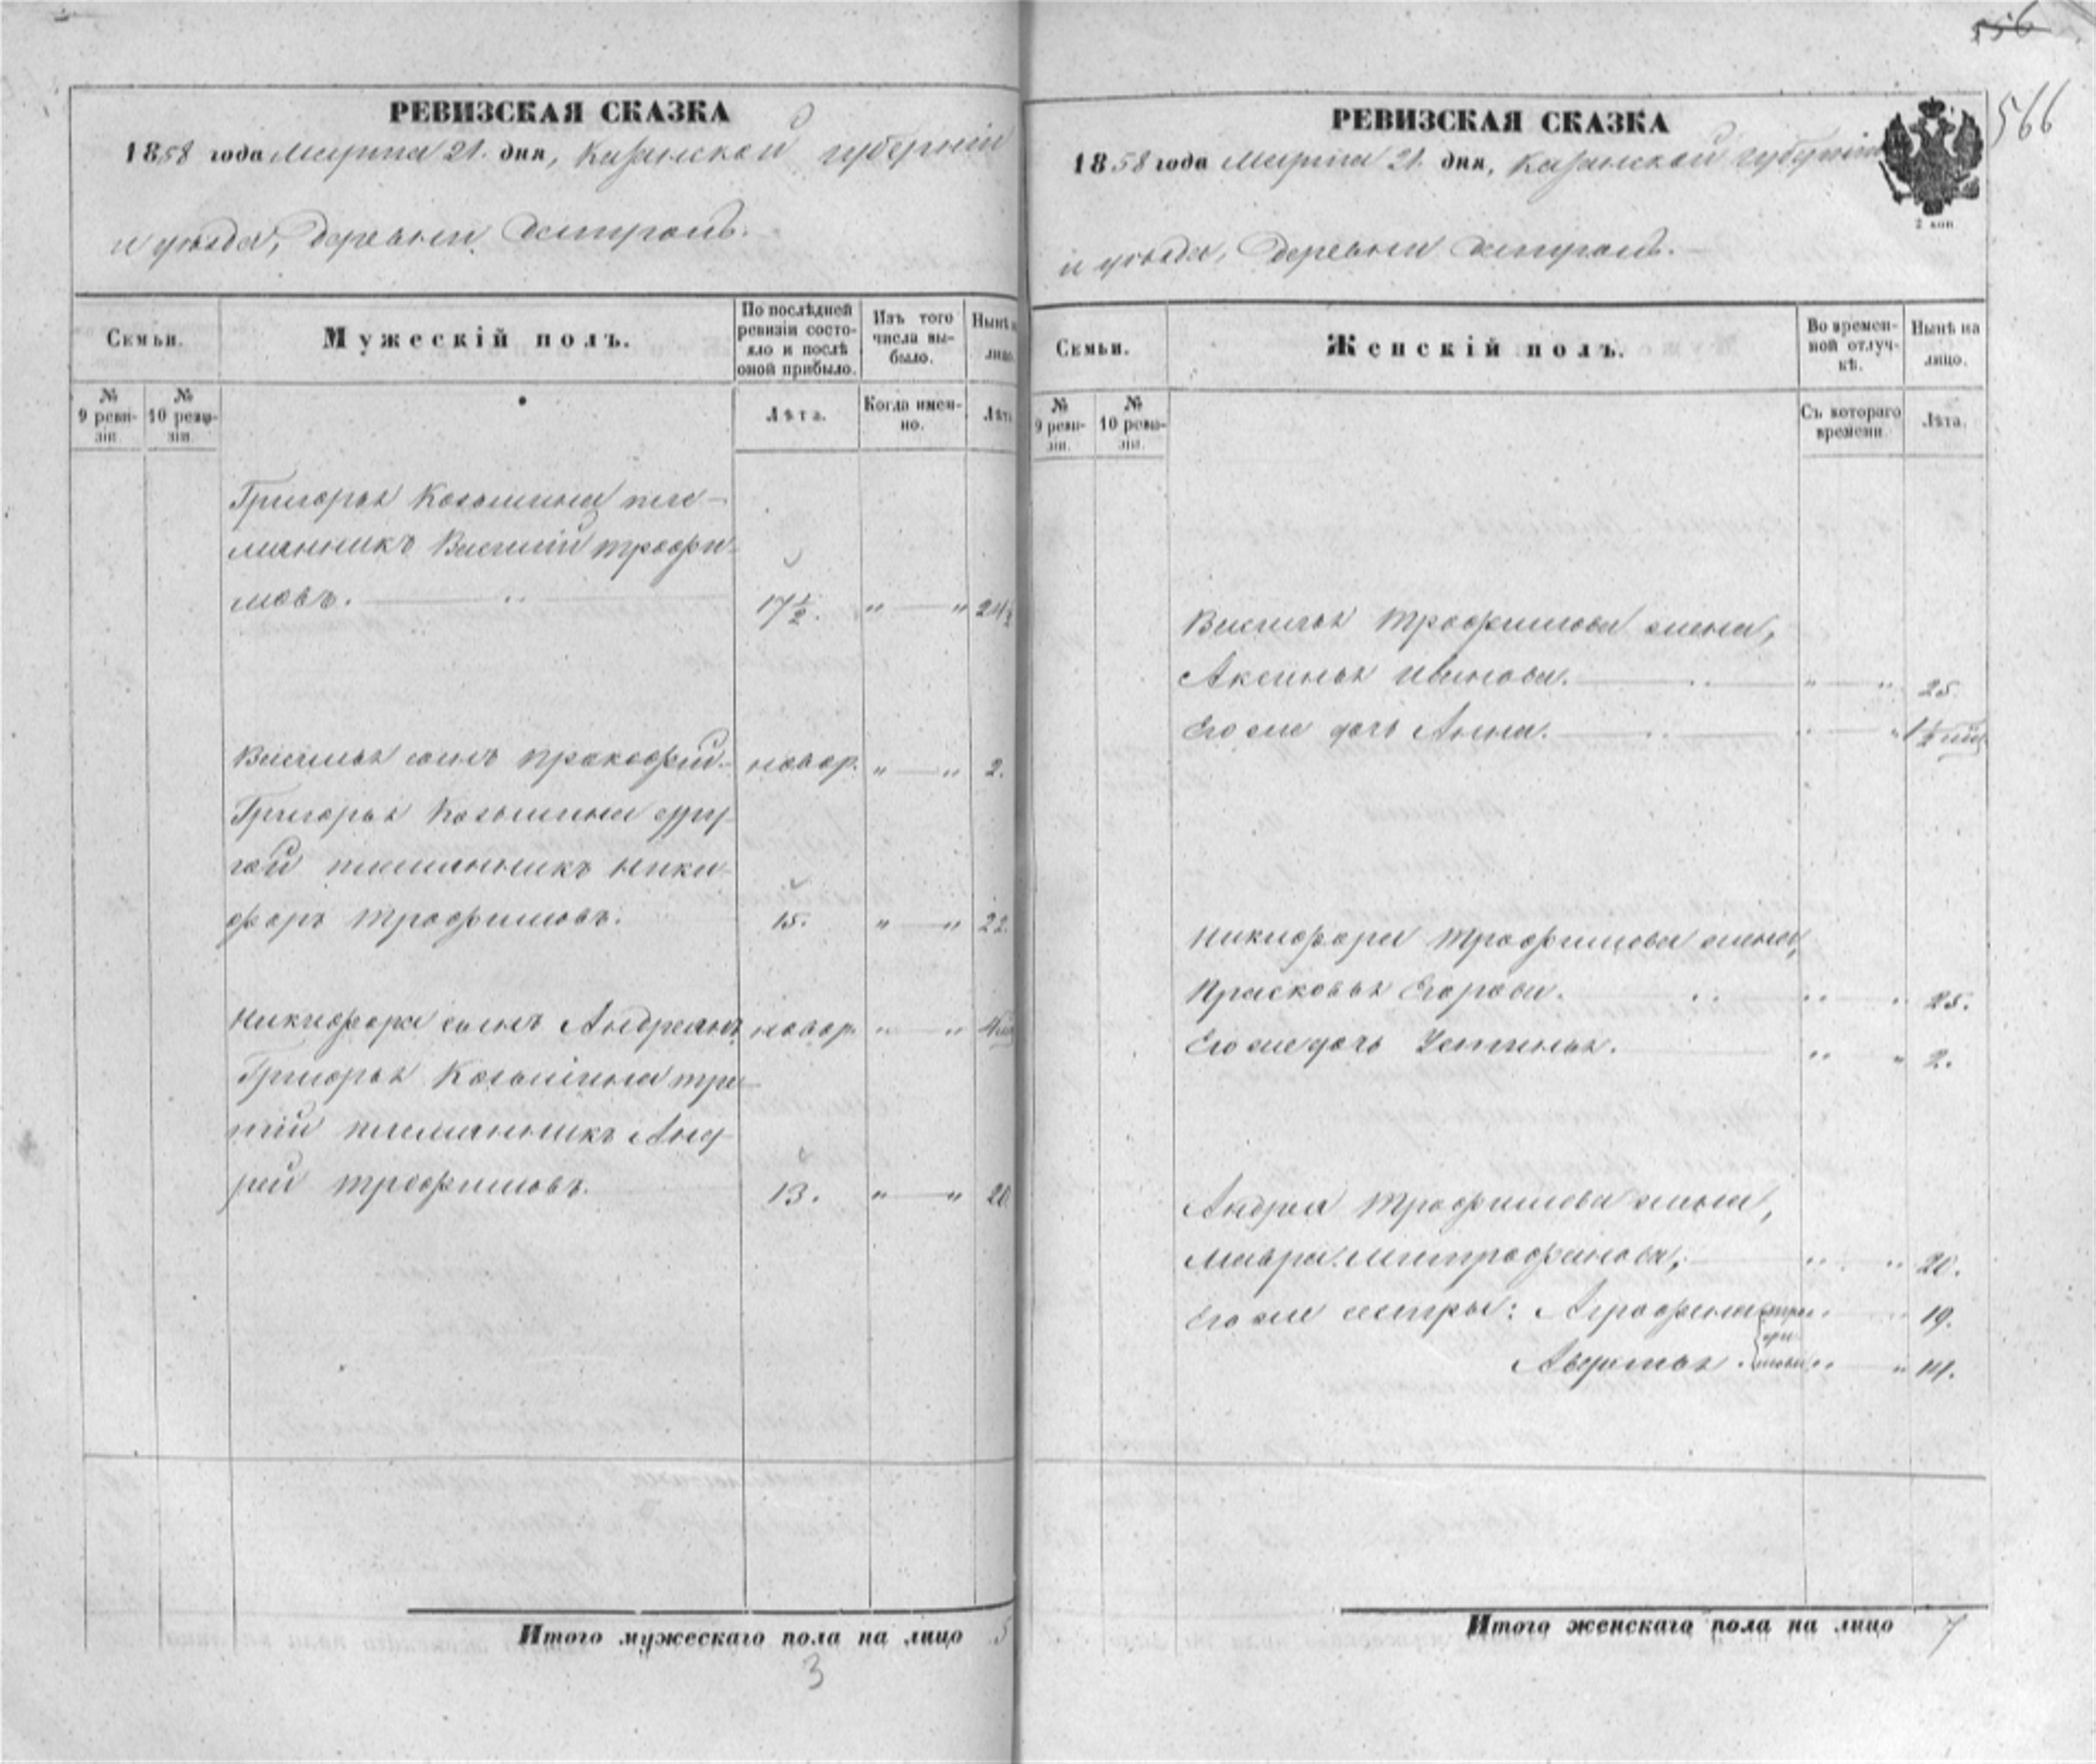 556
566
РЕВИЗСКАЯ СКАЗКА
1858 года Марта 21. дня, Казанской губерніи
и уѣзда, Деревни
Семьи.
Мужескій полъ.
По послѣдней ревизіи состояло и послѣ оной прибыло.
Изъ того числа выбыло.
Нынѣ на лицо.
№ 9 ревизіи.
№ 10 ревизіи.
Лѣта.
Когда именно.
Лѣта.
Григорья Козьмина пле-
мянникъ Василій Трофи-
мовъ. 17½. " — " 24½
Василья сынъ Прокофій. новор. " — " 2.
Григорья Козьмина дру-
гой племянникъ Ники-
форъ Трофимовъ. 15. " — " 22.
Никифора сынъ Андреянъ новор. " — "
Григорья Козьмина тре-
тій племянникъ Анд-
рей Трофимовъ. 13. " — " 20
Итого мужескаго пола на лицо 5
3
РЕВИЗСКАЯ СКАЗКА
1858 года Марта 21. дня, Казанской губерніи
и уѣзда, Деревни
2 коп
Семьи.
Женскій полъ.
Во временной отлучкѣ.
Нынѣ на лицо.
№ 9 ревизіи.
№ 10 ревизіи.
Съ котораго времени.
Лѣта.
Василья Трофимова жена,
Аксинья Иванова. " — " 25.
Его же дочь Анна. " — " 1½ мѣс
Никифора Трофимова жена,
Прасковья Егорова. " " 25.
Его же дочь Устинья. " " 2.
Андрея Трофимова жена,
Мавра Митрофанова, " " 20.
Его же сестры: Аграфена Тро- " 19.
фи-
Авдотья мовы " " 14.
Итого женскаго пола на лицо 7